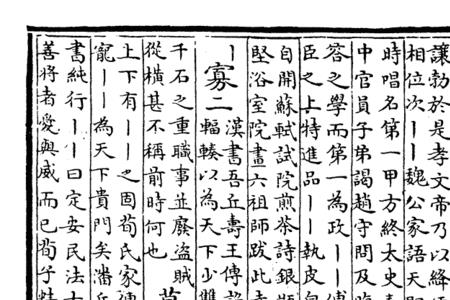 讓勃於是孝文帝乃以絳
相位次丨丨魏公家語天
時唱名第一甲方終太史
中官員子弟謁趙守問及
答之學而第一為政丨丨傅
臣之上特進品丨丨執皮
自開蘇軾試院煎茶詩銀瓶
堅浴室院畫六祖師跋此
丨寡二漢書吾丘壽王傳
輻輳以為天下少雙
千石之重職事並廢盜賊
從橫甚不稱前時何也
上下有丨丨之固荀氏家傳
寵丨丨為天下貴門矣潘岳
書純行丨丨曰定安民法
善將者愛與威而已荀子